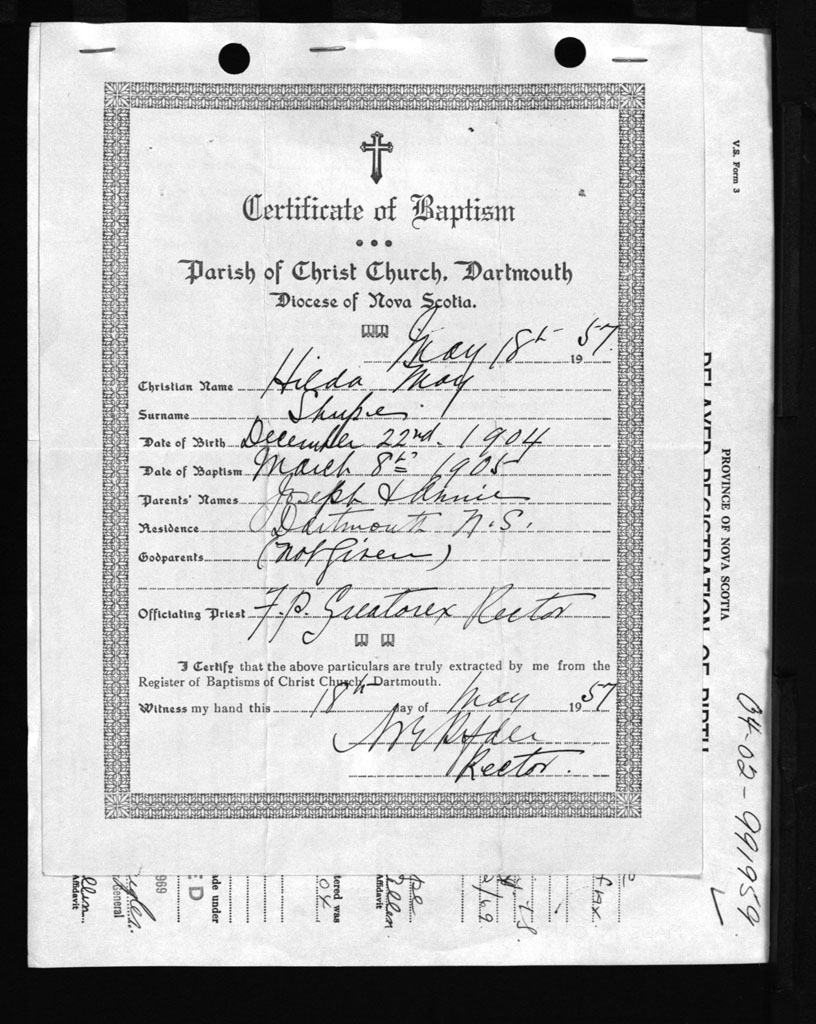 Certificate of Baptism
Parish of Christ Church, Dartmouth
Diocese of Nova Scotia.
May 18th 1957.
Christian Name Hilda May
Surname Shupe.
Date of Birth December 22nd. 1904
Date of Baptism March 8th 1905
Parents' Names Joseph & Annie
Residence Dartmouth N.S.
Godparents (not given)
Officiating Priest F.P. Greatorex Rector
I Certify that the above particulars are truly extracted by me from the
Register of Baptisms of Christ Church, Dartmouth.
Witness my hand this 18th day of May 1957
Ryder
Rector.
V.S. Form 3
PROVINCE OF NOVA SCOTIA
DELAYED REGISTRATION OF BIRTH
04-02-991959
Affidavit
General
969
ED
ade under
tered was
04
Affidavit
2/69